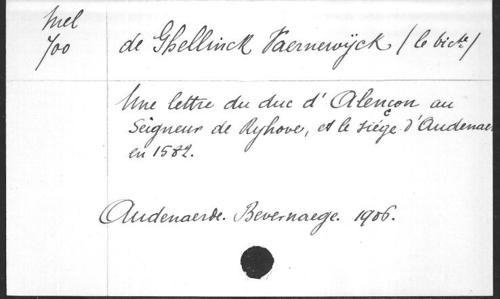 Mel
700
de Ghellinck Vaernewijck / (le victe)
Une lettre du duc d'Alençon au
Seigneur de Ryhove, et le siège d'Audenaer
en 1582.
Audenaerde. Bevernaege. 1906.